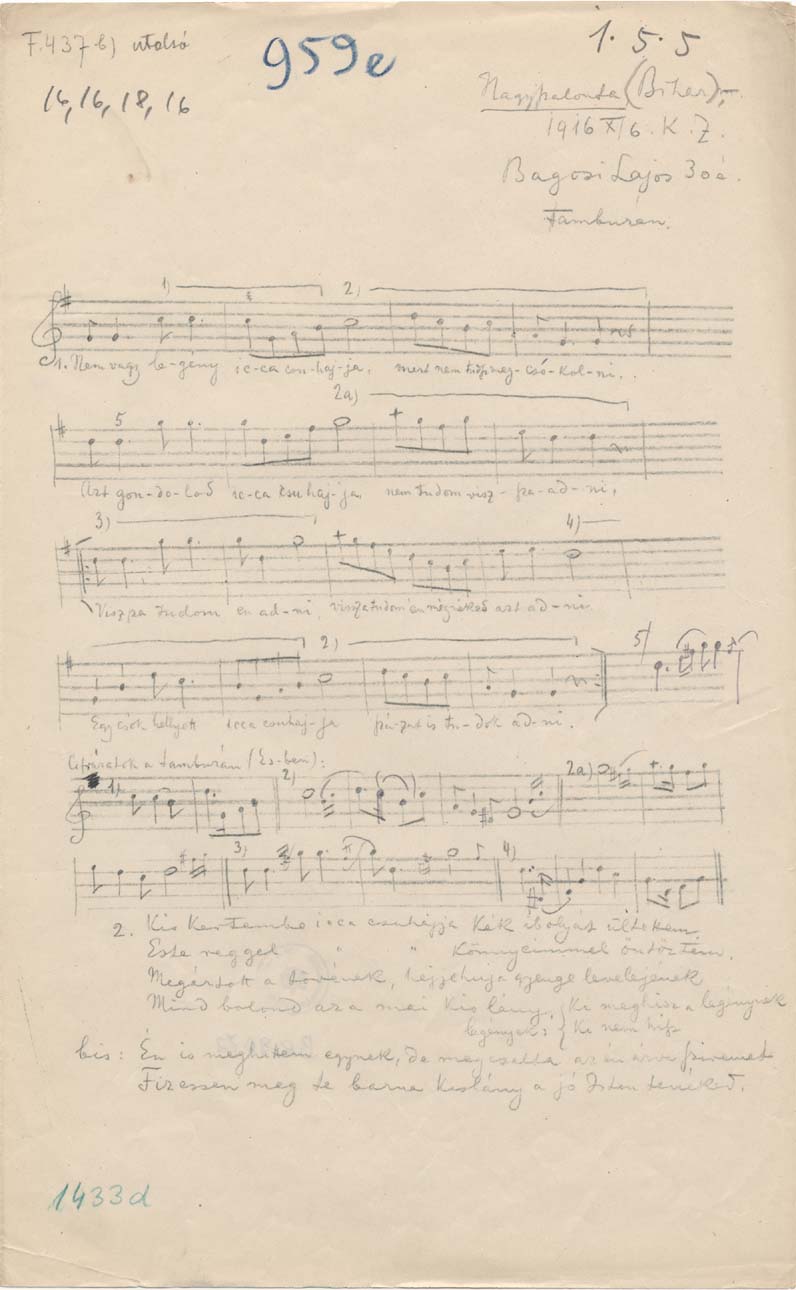 F.437 b) utolsó
959e
1. 5. 5
16, 16, 18, 16
Nagyszalonta (Bihar),
1916 XI/6. K. Z.
Bagosi Lajos 30é.
Tamburán.
1) 2)
1. Nem vagy le-gény ic-ca csu-haj-ja, mert nem tudsz meg-csó-kol-ni.
2a)
5
Azt gon-do-lod ic-ca csuhaj-ja, nem tudom visz-sza-ad-ni,
3) 4)
Viszsza tudom én ad-ni, vissza tudom én azt ad-ni
2) 5)
Egy csók hellyett icca csuhaj-ja szá-zat is tu-dok ad-ni.
Cifrázatok a tamburán (Es-ben):
1) 2) 2a)
3) 4)
2. Kis kertembe icca csuhajja kék ibolyát ültettem
Este reggel " " Könnyeimmel öntöztem.
Megártott a tövének, gyenge levelejének
Mind bolond az a mai kis lány, Ki meghisz a legénynek
legények: Ki nem hisz
bis: Én is meghittem egynek, de megcsalta az én árva szivemet
Fizessen meg te barna kislány a jó Isten tenéked.
1433d